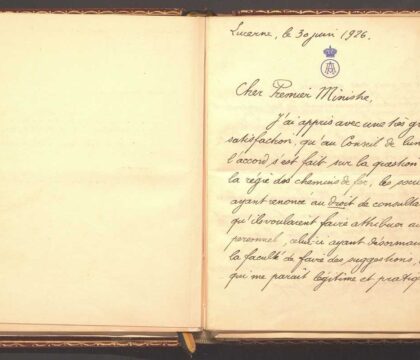 Lucerne, le 30 juin 1926.
Cher Premier Ministre,
J'ai appris avec une très gr
satisfaction, qu'au Conseil de lun
l'accord s'est fait sur la question
la régie des chemins de fer, les soci
ayant renoncé au droit de consulta
qu'ils voulaient faire attribuer au
personnel, celui-ci ayant désormai
la faculté de faire des suggestions,
qui me paraît légitime et pratiq